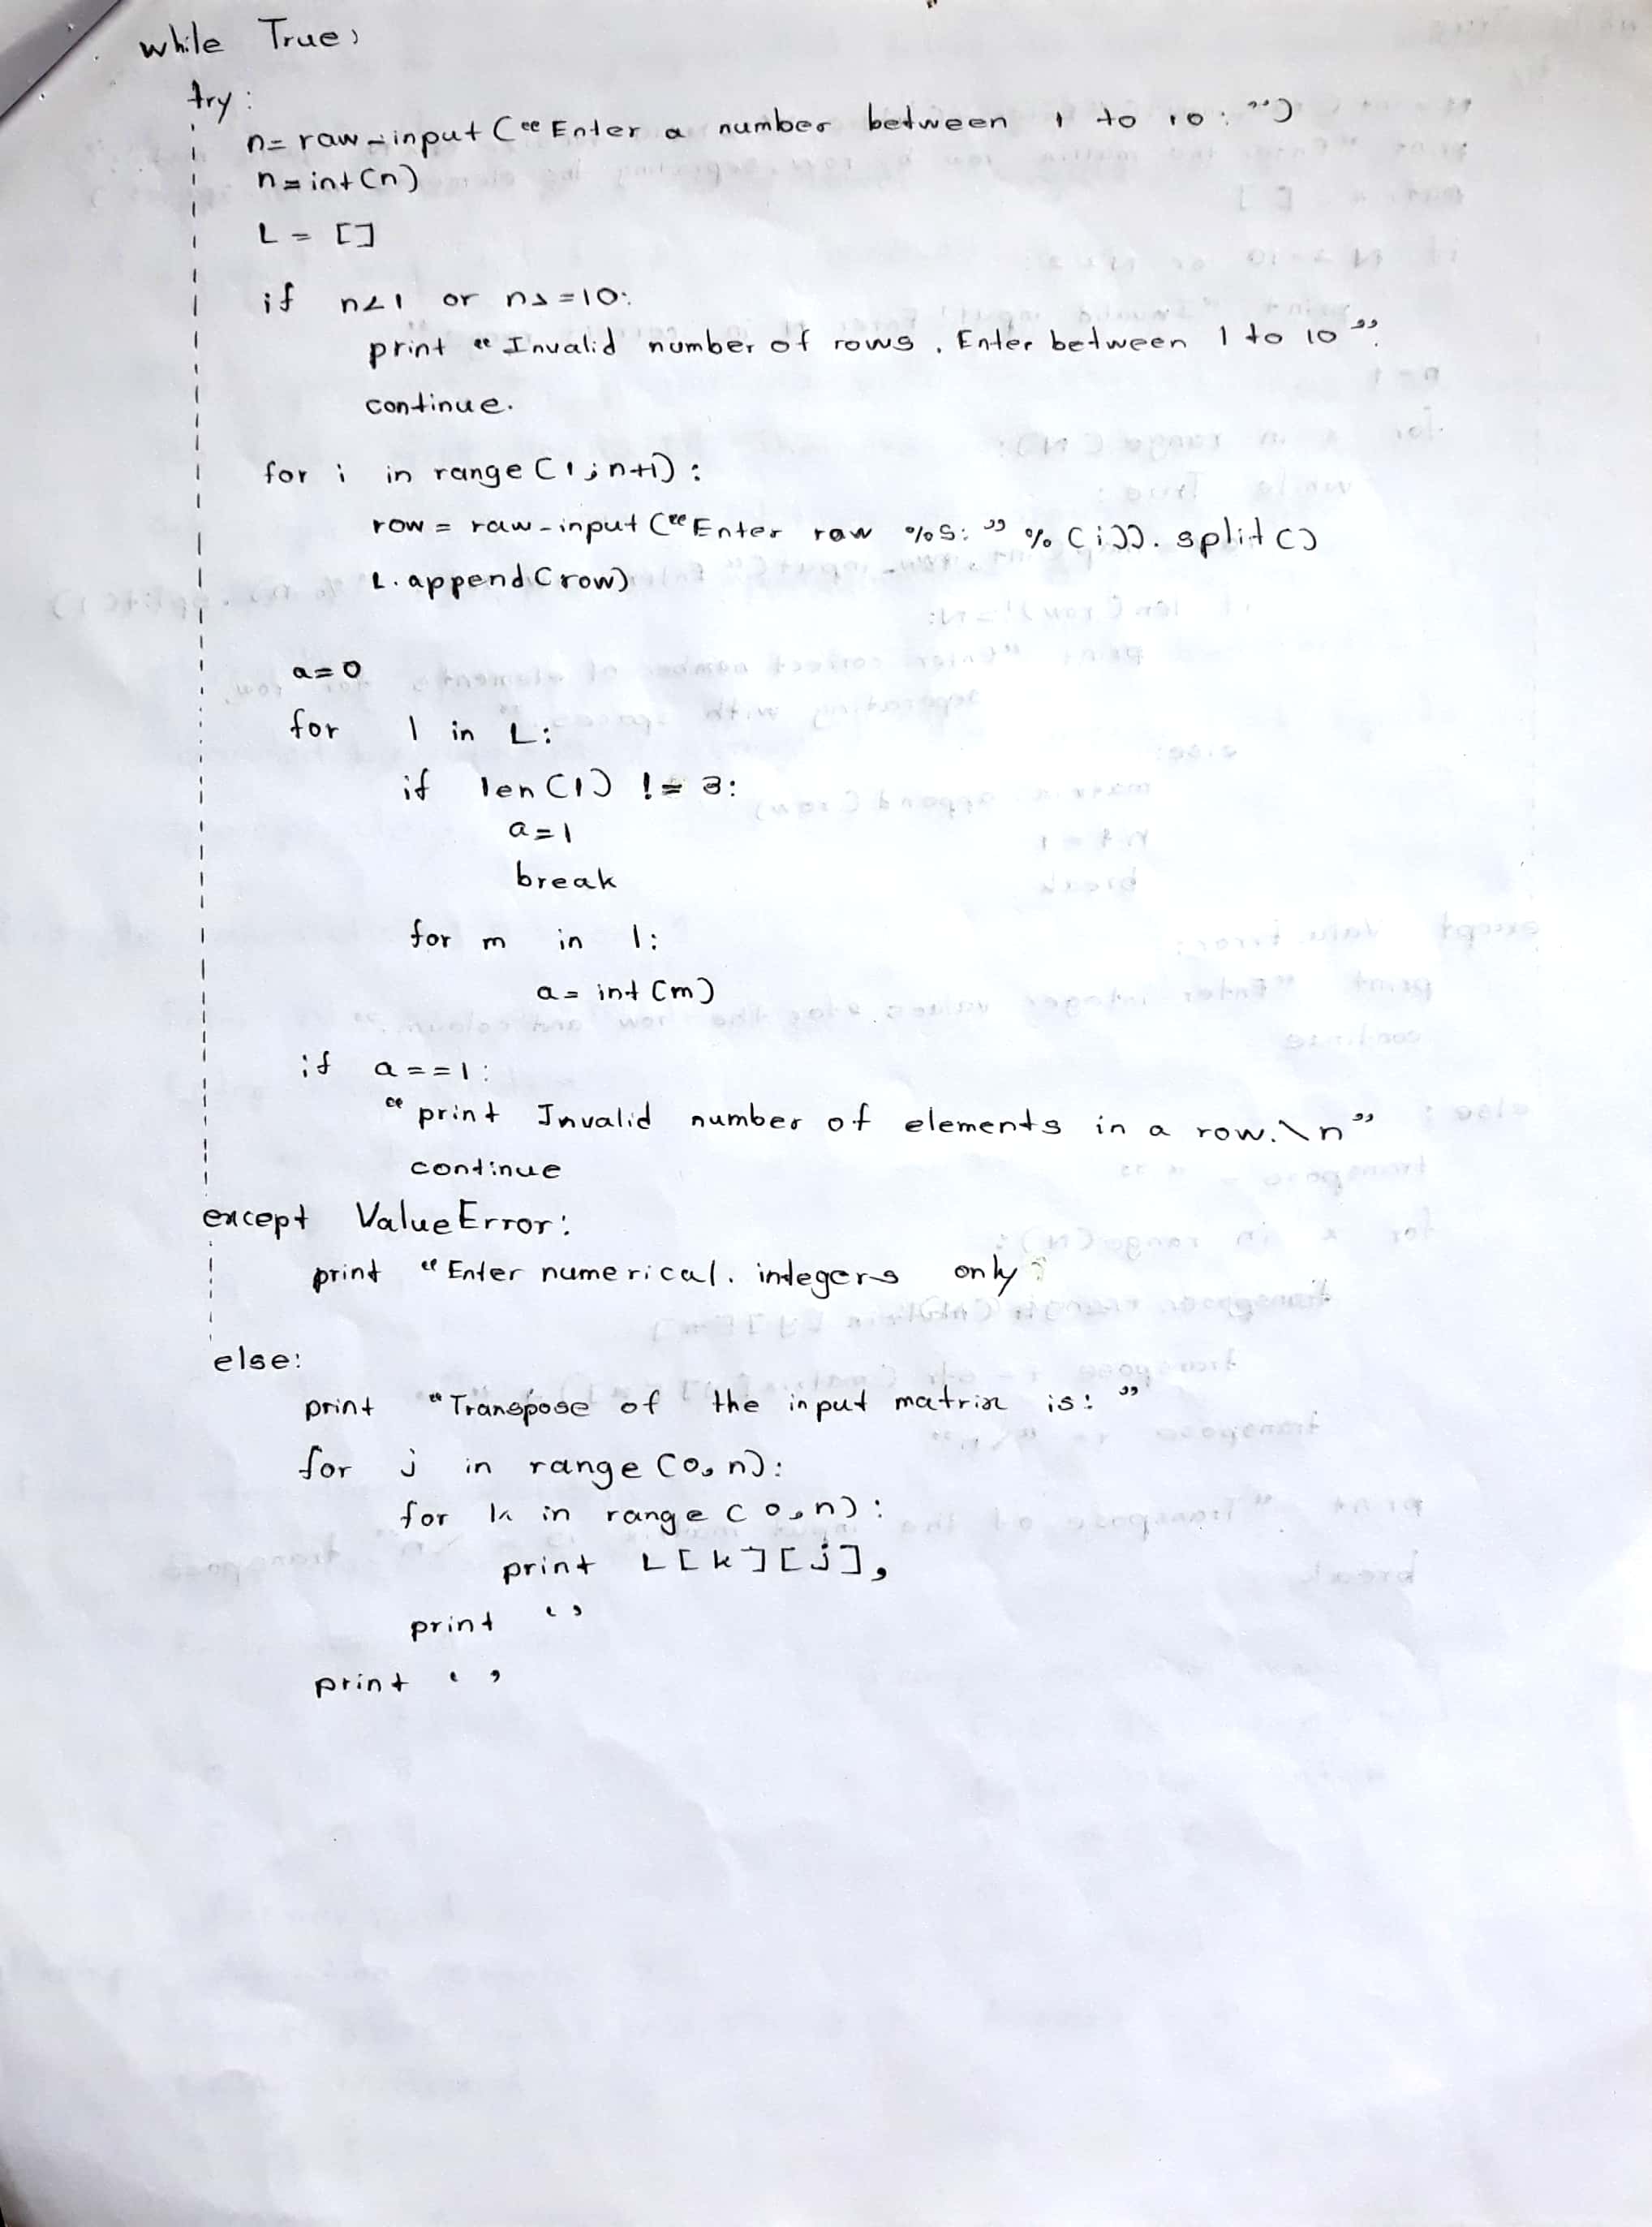 while True:
try:
n= raw_input ("Enter a number between 1 to 10: ")
n=int(n)
L = []
if n<1 or n>=10:
print "Invalid number of rows. Enter between 1 to 10".
continue.
for i in range (1,n+1):
row = raw_input ("Enter raw %s: " % (i)). split()
L.append(row)
a=0
for l in L:
if len(l) != 3:
a=1
break
for m in l:
a= int(m)
if a==1:
"print Invalid number of elements in a row.\n"
continue
except ValueError:
print "Enter numerical. integers only"
else:
print "Transpose of the input matrix is: "
for j in range (0,n):
for k in range (0,n):
print L[k][j],
print ' '
print ' '